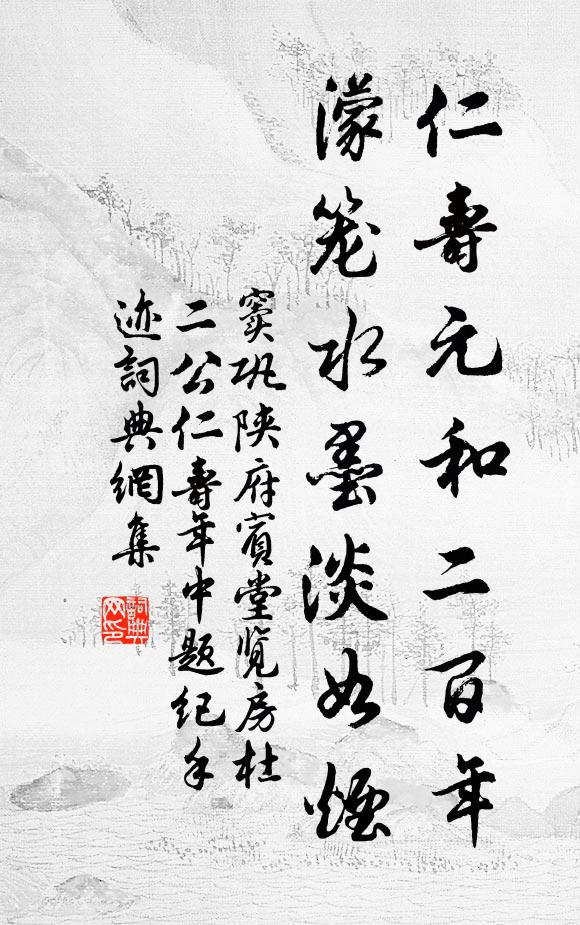 仁壽元和二百年
濛笼水墨淡如煙
窦巩陕府賓堂览房杜
二公仁壽年中題纪手
迹詞典網集
詞典网印